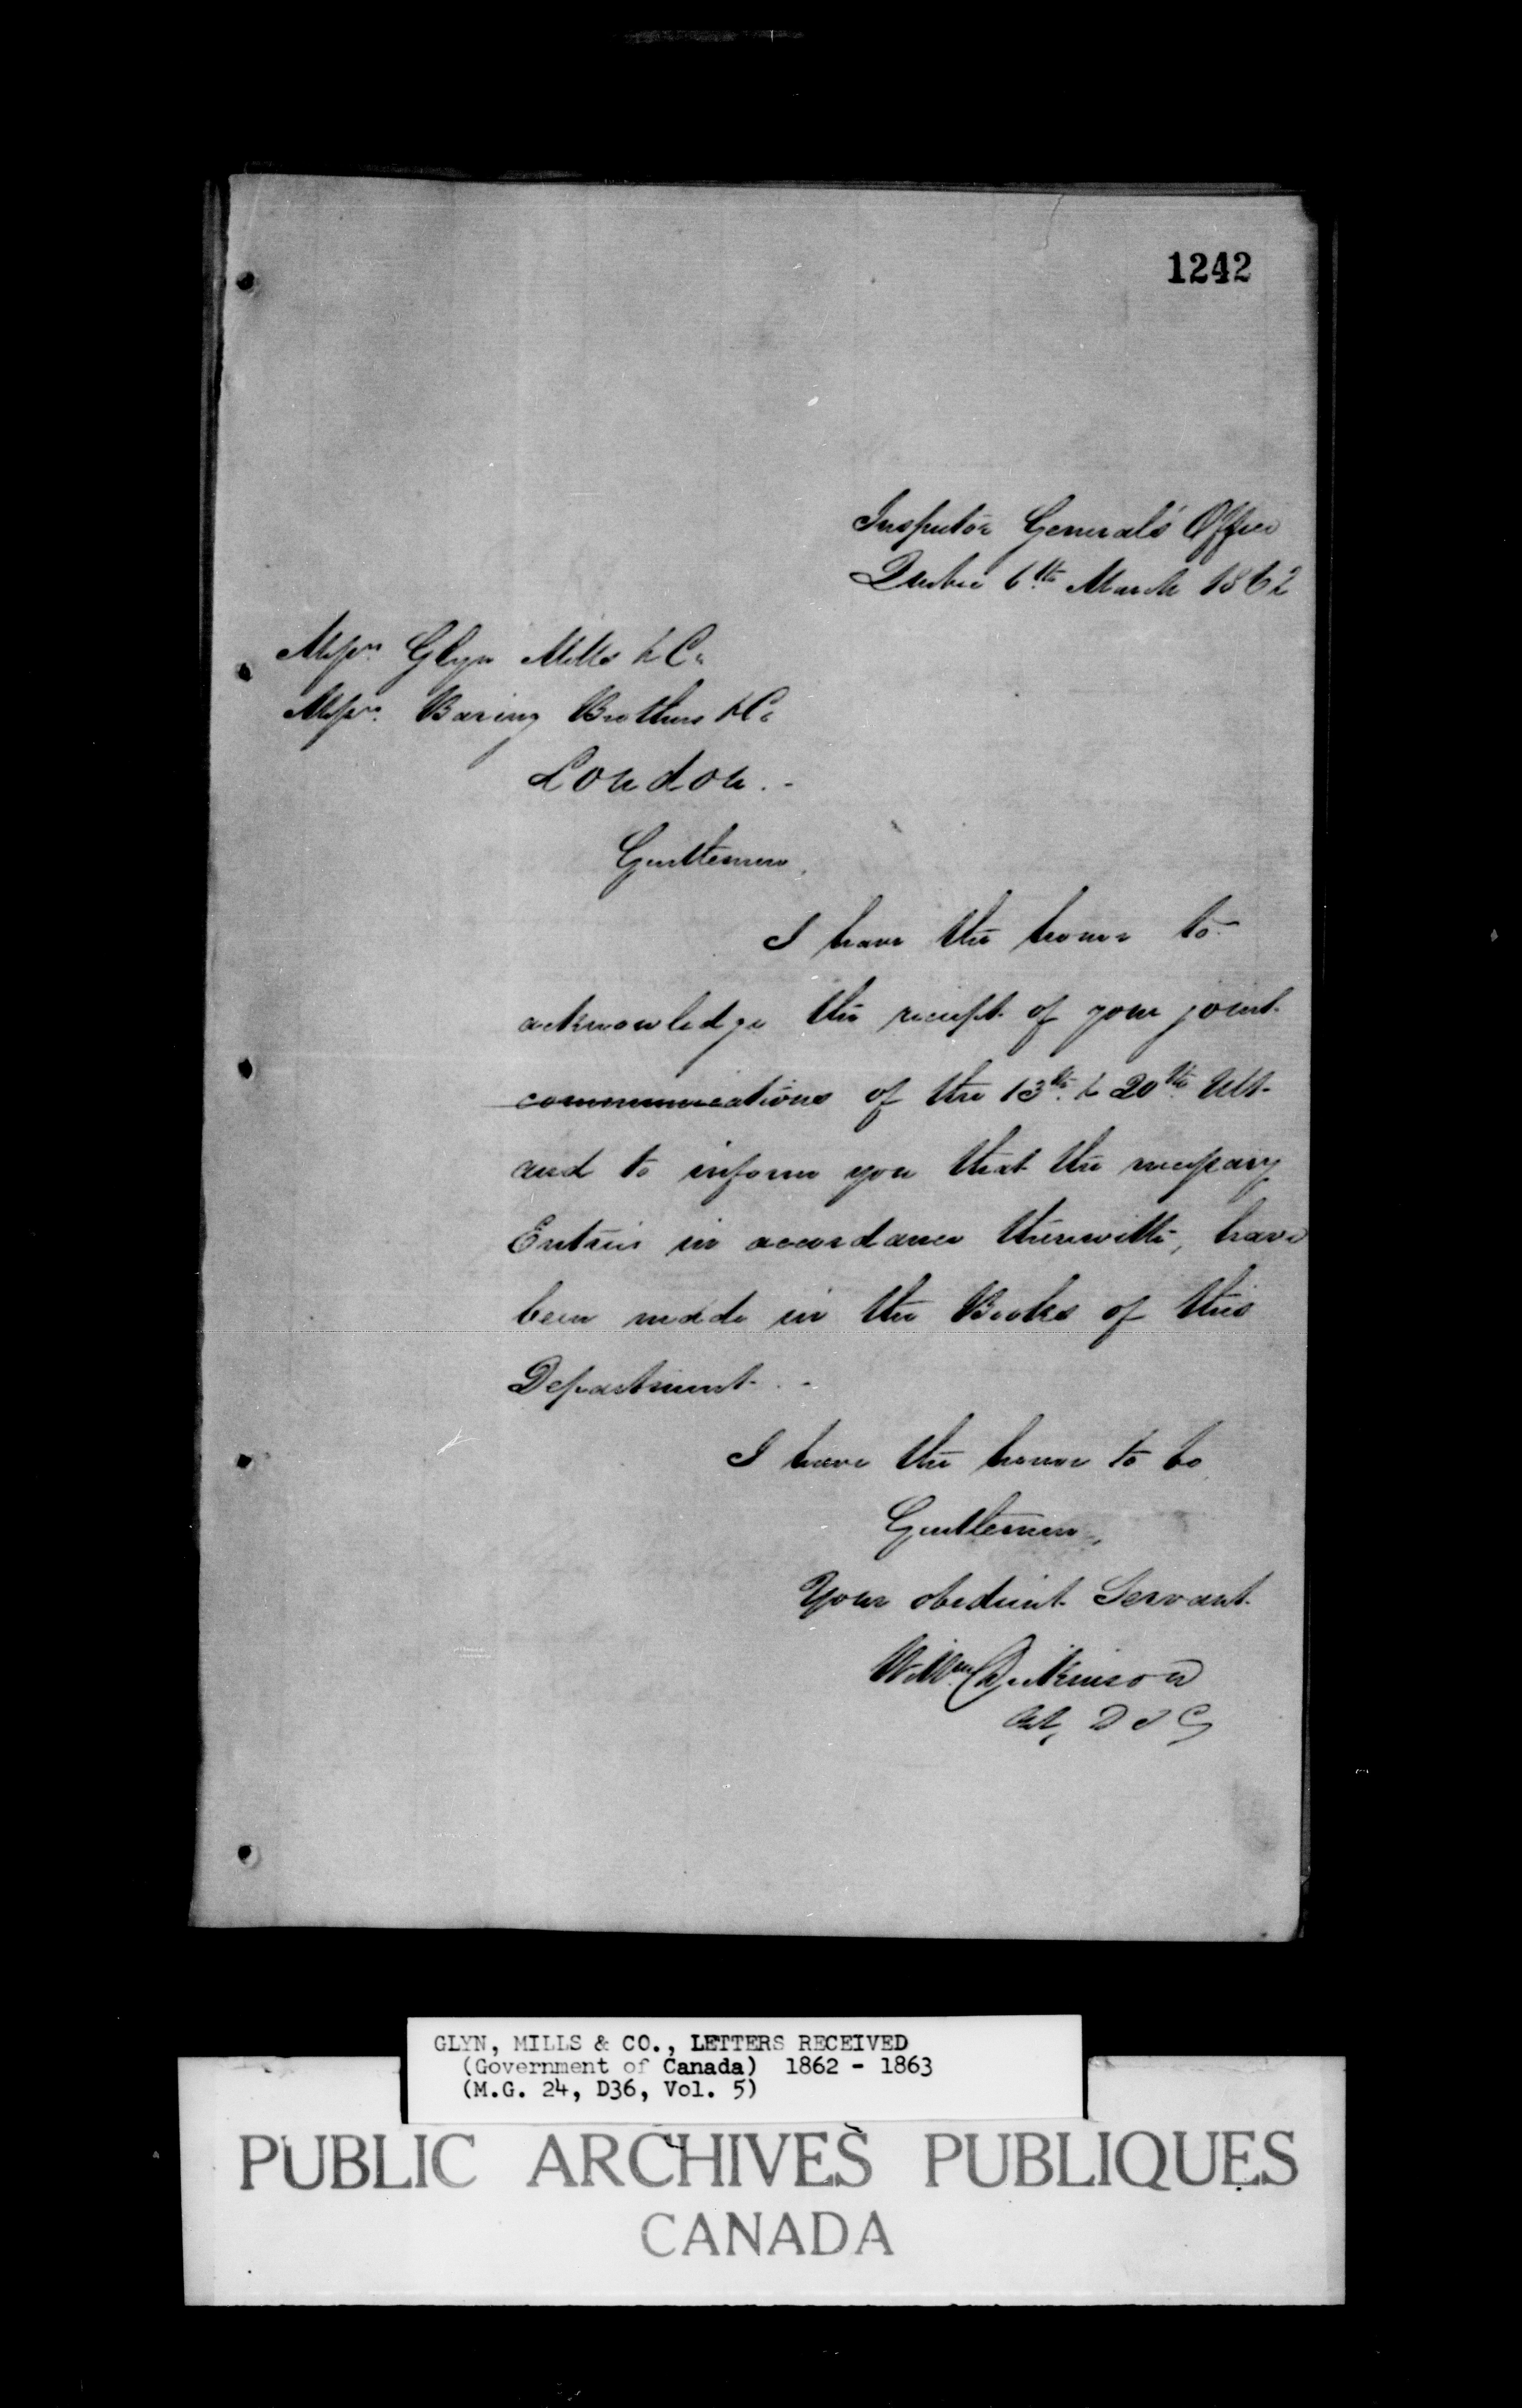 1242
Inspector General's Office
Quebec 6th March 1862
Messrs Glyn Mills & Co
Messrs Baring Brothers & Co
London. -
Gentlemen,
I have the honor to
acknowledge the receipt of your joint
communications of the 13th & 20th Ult.
and to inform you that the necessary
Entries in accordance therewith, have
been made in the Books of this
Department. -
I have the honor to be
Gentlemen,
Your obedient Servant
Willm Dickinson
Act, D I G
GLYN, MILLS & CO., LETTERS RECEIVED
(Government of Canada) 1862 - 1863
(M.G. 24, D36, Vol. 5)
PUBLIC ARCHIVES PUBLIQUES
CANADA